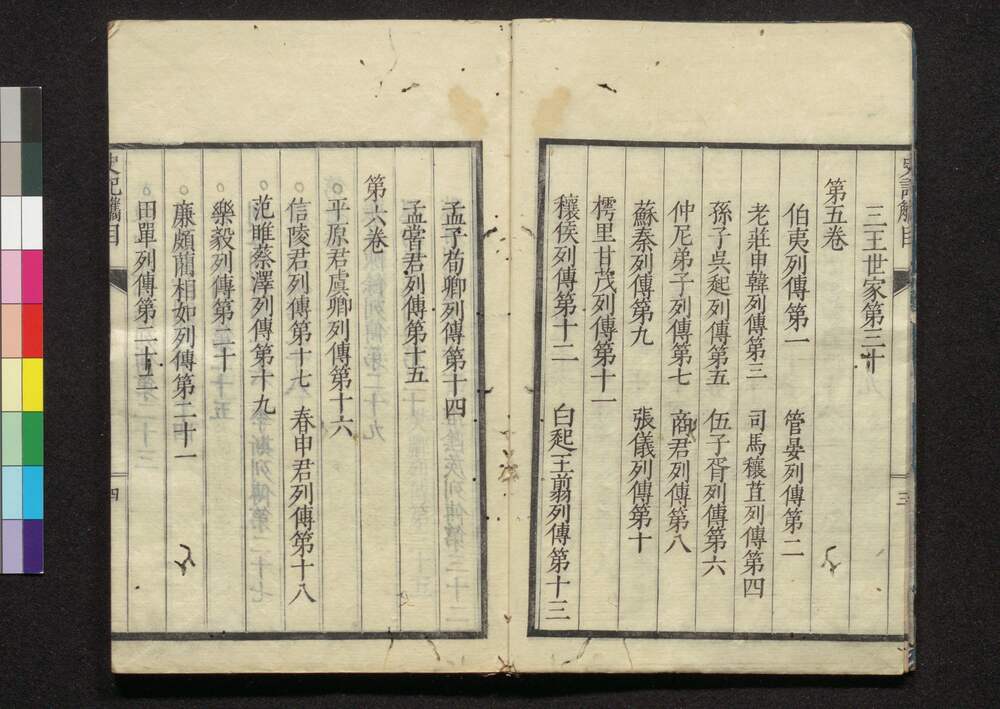 三王世家第三十
第五卷
伯夷列傳第一　管晏列傳第二
老莊申韓列傳第三　司馬穰苴列傳第四
孫子吳起列傳第五　伍子胥列傳第六
仲尼弟子列傳第七　商君列傳第八
蘇秦列傳第九　張儀列傳第十
樗里甘茂列傳第十一
穰侯列傳第十二　白起王翦列傳第十三
三
孟子荀卿列傳第十四
孟嘗君列傳第十五
第六卷
平原君虞卿列傳第十六
信陵君列傳第十七　春申君列傳第十八
范雎蔡澤列傳第十九
樂毅列傳第二十
廉頗藺相如列傳第二十一
田單列傳第二十二
四